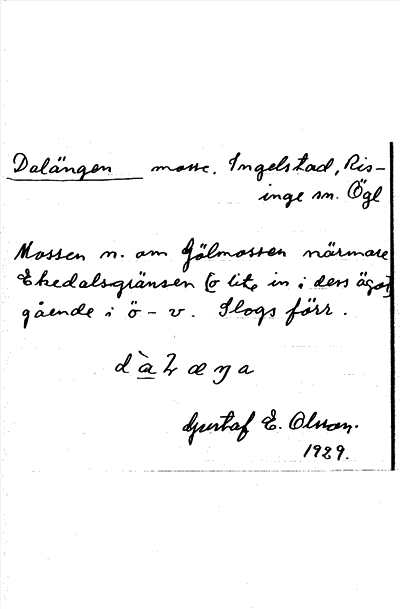 Dalängen mosse. Ingelstad, Ris-
inge sn. Ögl
Mossen n. om Gölmossen närmare
Ekedalsgränsen (o lite in i dess ägor)
gående i ö - v. Slogs förr.
Gustaf E. Olsson.
1929.